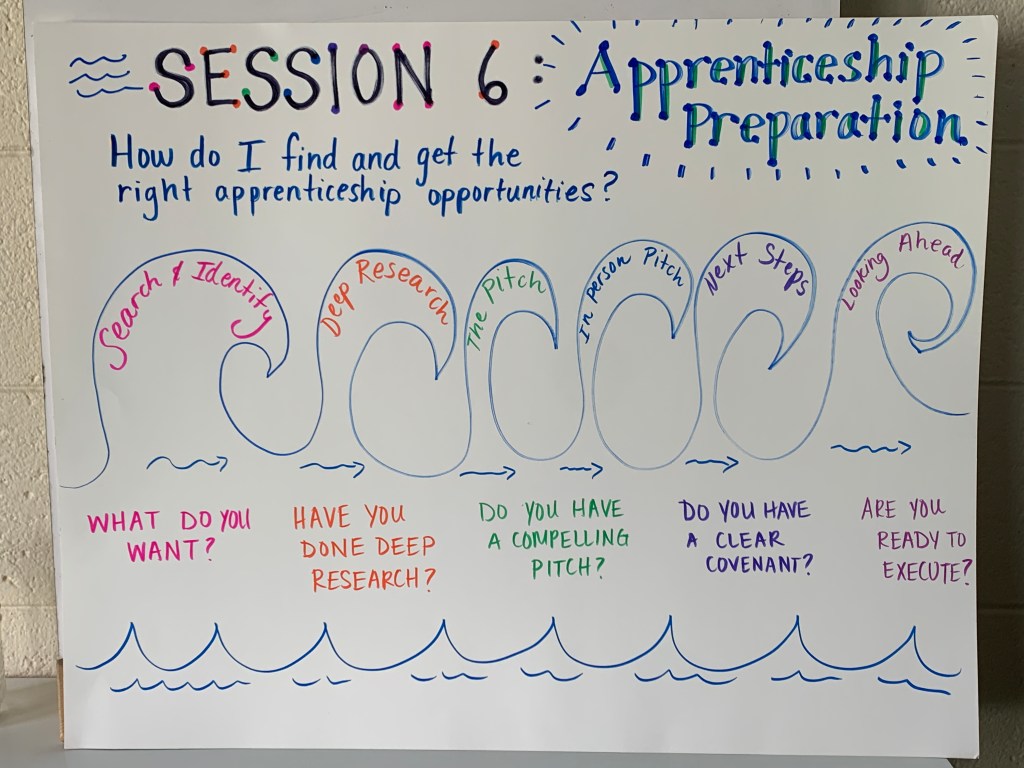 SESSION 6: Apprenticeship
Preparation
How do I find and get the
right apprenticeship opportunities?
Search & Identify
Deep Research
The Pitch
In person Pitch
Next Steps
Looking Ahead
WHAT DO YOU
WANT?
HAVE YOU
DONE DEEP
RESEARCH?
DO YOU HAVE
A COMPELLING
PITCH?
DO YOU HAVE
A CLEAR
COVENANT?
ARE YOU
READY TO
EXECUTE?